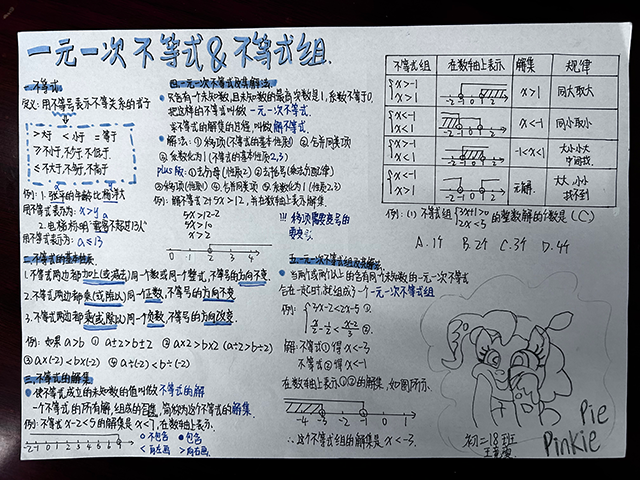 一元一次不等式&不等式组.
一.不等式:
定义:用不等号表示不等关系的式子
>大于 <小于 =等于
≥不小于,不少于,不低于
≤不大于,不多于,不高于
例:1.张华的年龄比杨洋大
用不等式表示为: x>y
2.电梯标明"载客不超过13人"
用不等式表示为: a≤13
二.不等式的基本性质
1.不等式两边都加上(或减去)同一个数或同一个整式,不等号的方向不变.
2.不等式两边都乘(或除以)同一个正数,不等号的方向不变
3.不等式两边都乘(或除以)同一个负数,不等号的方向改变.
例:如果a>b ①a±2>b±2 ②a×2>b×2 (a÷2>b÷2)
③a×(-2)<b×(-2) ④a÷(-2)<b÷(-2)
三.不等式的解集
使不等式成立的未知数的值叫做不等式的解
一个不等式的所有解,组成的集合,简称为这个不等式的解集
例:不等式x-2<5的解集是x<7,在数轴上表示.
○不包含 ●包含
<向左画 >向右画.
四.一元一次不等式及其解法:
只含有一个未知数,且未知数的最高次数是1,系数不等于0.
把这样的不等式叫做一元一次不等式.
求不等式的解集的过程,叫做解不等式.
解法:①移项(不等式的基本性质1) ②合并同类项
③系数化为1(不等式的基本性质2,3)
plus版:①去分母(性质2) ②去括号(乘法分配律)
③移项(性质1) ④合并同类项 ⑤系数化为1(性质2,3)
例:解不等式2+5x>12,并在数轴上表示解集.
5x>12-2
5x>10
x>2
0 1 2 3 4
!!!移项需要变号
五.一元一次不等式组及其解法
当两个或两个以上的含有同一个未知数的一元一次不等式
合在一起时,就组成了一个一元一次不等式组
例: 3x-2<2x-5 ①
解:不等式①得x<-3
在数轴上表示①②的解集,如图所示.
-4 -3 -2 -1 0 1
∴这个不等式组的解集是x<-3.
不等式组 在数轴上表示 解集 规律
x>-1
x>1 x>1 同大取大
x<-1
x<1 x<-1 同小取小
x>-1
x<1 -1<x<1 大小小大
中间找.
x<-1
x>1 无解. 大大,小小
找不到
例:(1)不等式组 3x+1>0
2x<5 的整数解的个数是(C)
A.1个 B.2个 C.3个 D.4个
Pie
Pinkie
初二18班